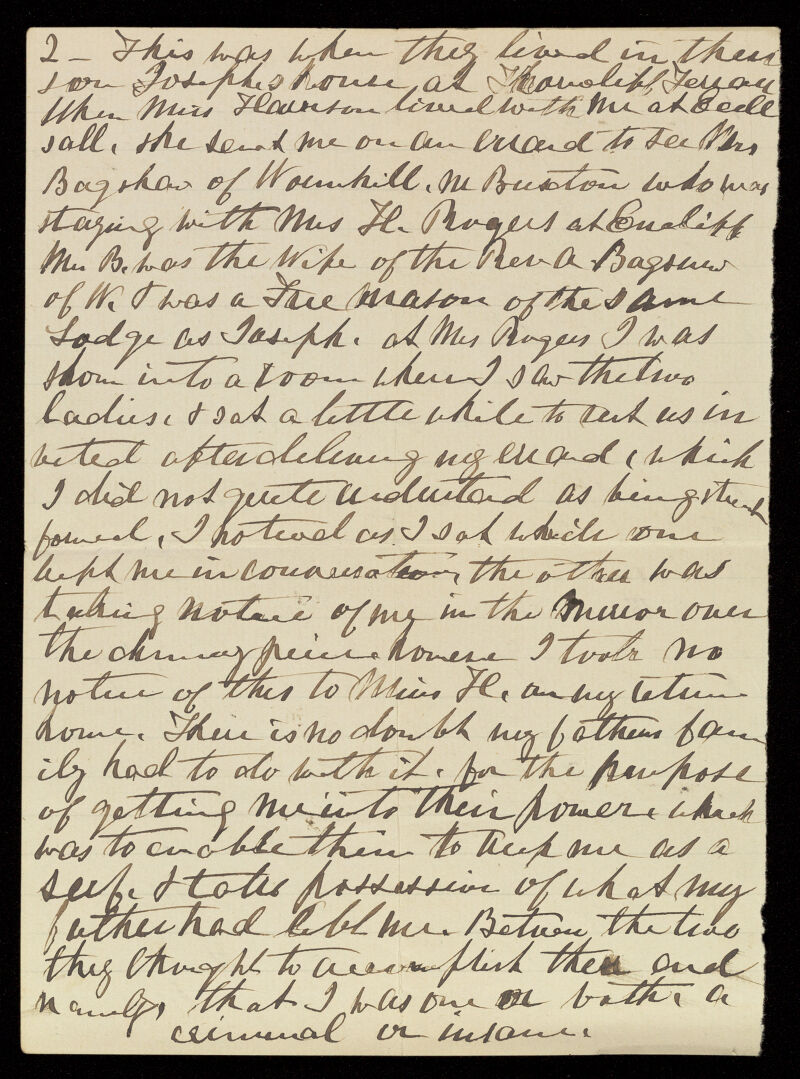 2 - This was when they lived in their
son Joseph's house at Thorncliff Terrace
When Miss Harrison lived with me at Eccle
sall, she sent me on an errand to see Mrs
Bagshaw of Wormhill, nr Buxton who was
staying with Mrs H. Rogers at Endcliff
Mrs B. was the Wife of the Rev A Bagshaw
of W. & was a Free Mason of the same
Lodge as Joseph. at Mrs Rogers I was
shown into a room where I saw the two
ladies, & sat a little while to rest as in
vited after delivering my errand, which
I did not quite understand as being straight
forward, I noticed as I sat while one
kept me in conversation, the other was
taking notice of my in the mirror over
the chimney piece. however I took no
notice of this to Miss H, on my return
home. There is no doubt my fathers fam
ily had to do with it. for the purpose
of getting me into their power, which
was to enable them to keep me as a
serf, & take possession of what my
father had left me. Between the two
they thought to accomplish their end
namely, that I was one or both, a
criminal or insane.